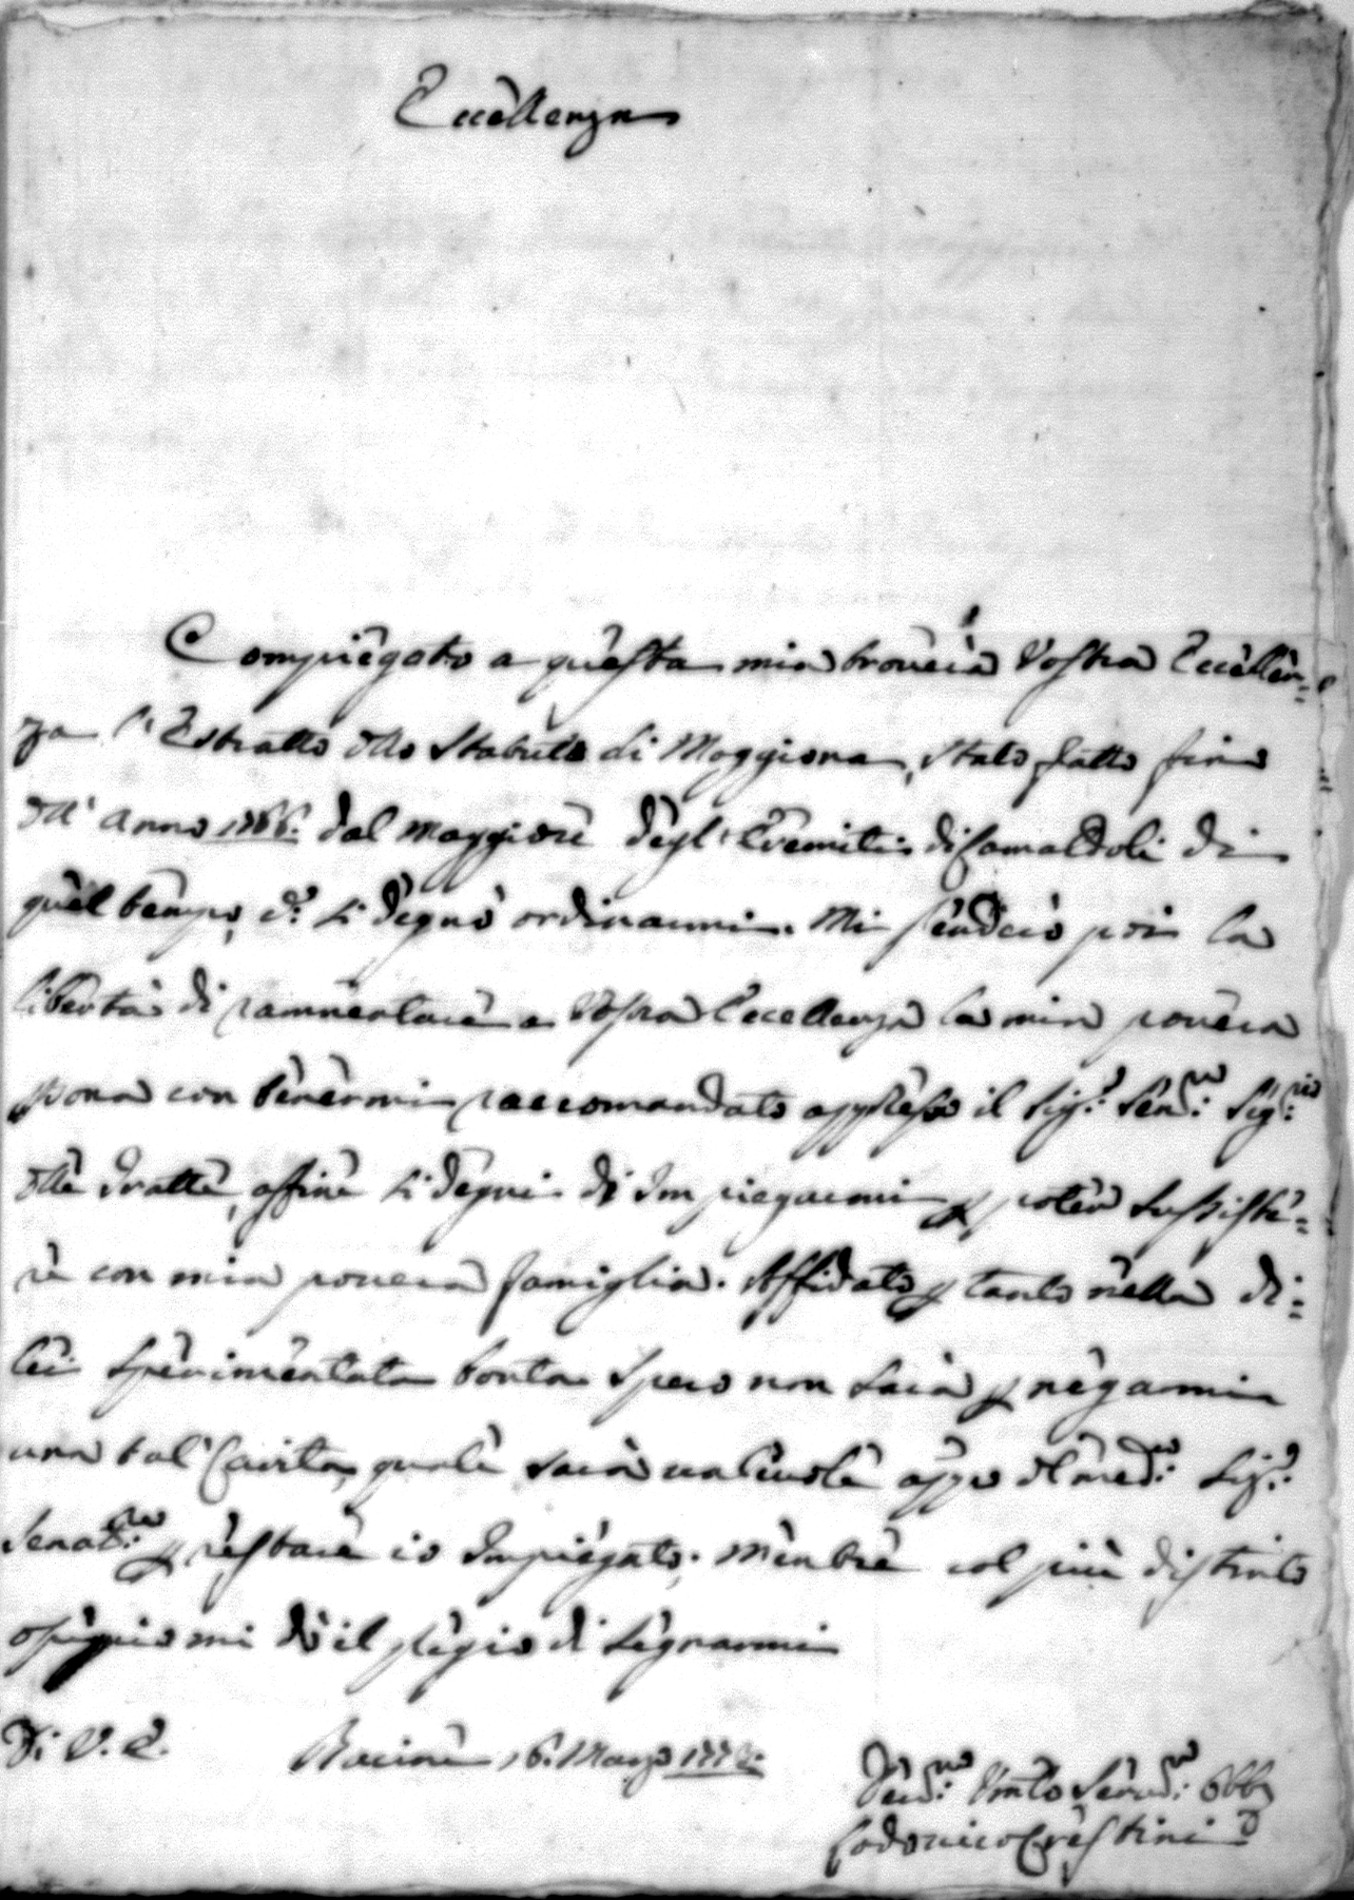 Eccellenza
Compiegato a questa mia troverà Vostra Eccellen=
za l'Estratto dllo Stabile di Moggiona, stato fatto fino
dll' Anno 1766. dal Maggiore degl'Eremiti di Camaldoli di
quel tempo, si degnò ordinarmi. Mi prenderò poi la
libertà di rammentare a Vostra Eccellenza la mia povera
psona con tenermi raccomandato appresso il Sig.r Sen.
dlle Tratte, affine si degni di Impiegarmi p poter sussiste=
re con mia povera famiglia. Affidato p tanto nella di=
lei sperimentata bontà spero non sarà p negarmi
una tal Carità, quale sarà valevole appo il med.mo Sig.r
Senat.re p restare io Impiegato; mentre col più distinto
ossequio mi dò il pregio di segnarmi
Di V. E. 16. Marzo
Dev.mo Vmilo Serv.
Lodovico Crestini